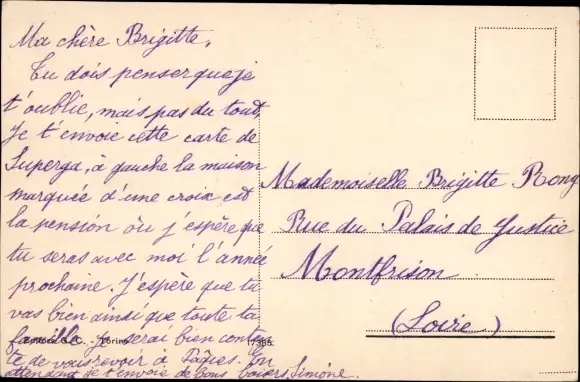 Ma chère Brigitte,
Tu dois penser que je
t'oublie, mais pas du tout,
Je t'envoie cette carte de
Superga, à gauche la maison
marquée d'une croix est
la pension où j'espère que
tu seras avec moi l'année
prochaine. J'espère que tu
vas bien ainsi que toute ta
famille. Je serai bien conten
te de vous revoir à Pâques. En
attendant je t'envoie de bons baisers Simone.
G. C. - Torino
Mademoiselle Brigitte Rony
Rue du Palais de Justice
Montfrison
(Loire)